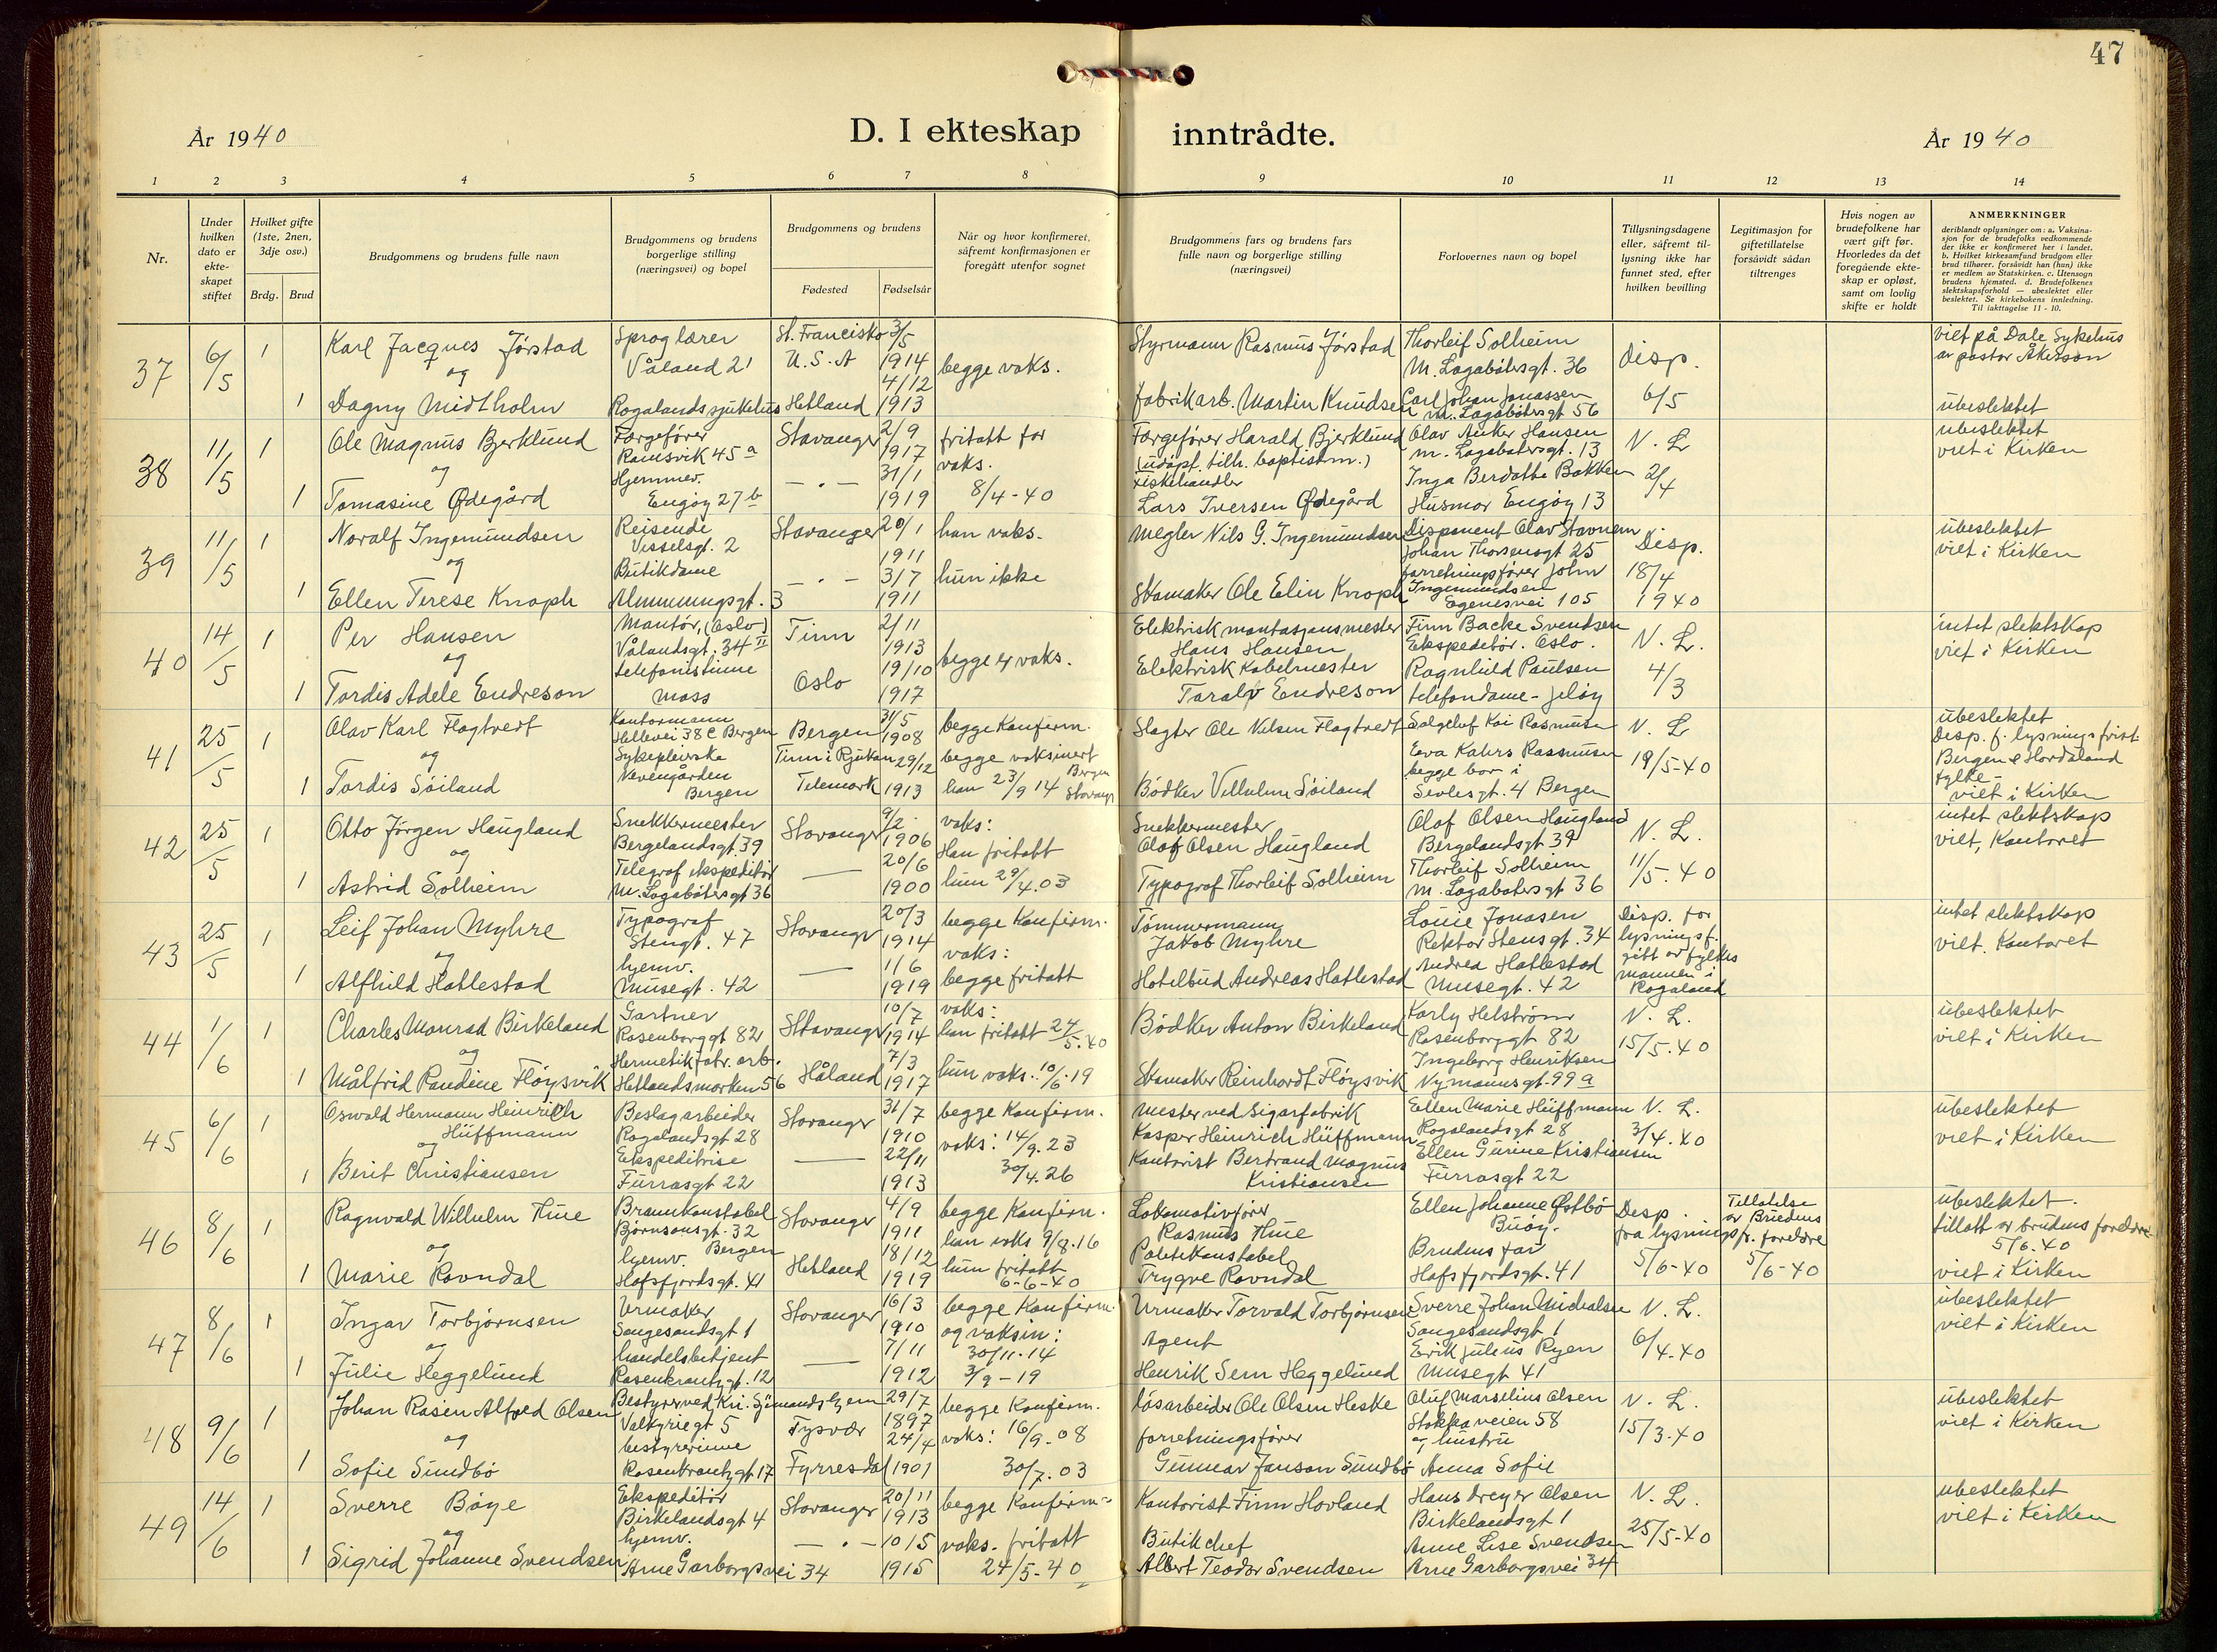 47
År 1940
D. I ekteskap inntrådte.
År 1940
1 2 3 4 5 6 7 8 9 10 11 12 13 14
Nr.
Under hvilken dato er ekte-skapet stiftet
Hvilket gifte (1ste, 2nen, 3dje osv.)
Brdg. Brud
Brudgommens og brudens fulle navn
Brudgommens og brudens borgerlige stilling (næringsvei) og bopel
Brudgommens og brudens
Fødested Fødselsår
Når og hvor konfirmeret, såfremt konfirmasjonen er foregått utenfor sognet
Brudgommens fars og brudens fars fulle navn og borgerlige stilling (næringsvei)
Forlovernes navn og bopel
Tillysningsdagene eller, såfremt til-lysning ikke har funnet sted, efter hvilken bevilling
Legitimasjon for giftetillatelse forsåvidt sådan tiltrenges
Hvis nogen av brudefolkene har vært gift før. Hvorledes da det foregående ekte-skap er opløst, samt om lovlig skifte er holdt
ANMERKNINGER
deriblandt oplysninger om: a. Vaksina-sjon for de brudefolks vedkommende der ikke er konfirmeret her i landet. b. Hvilket kirkesamfund brudgom eller brud tilhører, forsåvidt han (hun) ikke er medlem av Statskirken. c. Utensogn brudens hjemsted. d. Brudefolkenes slektskapsforhold — ubeslektet eller beslektet. Se kirkebokens innledning. Til iakttagelse 11 - 10.
37 6/5 1 Karl Jacques Jørstad
og
1 Dagny Midtholm
Sproglærer
Våland 21
Rogalands sjukehus
St. Francisko
U.S.A
Hetland
3/5
1914
4/12
1913
begge vaks.
Styrmann Rasmus Jørstad
fabrikarb. Martin Knudsen
Thorleif Solheim
M. Lagabøtersgt. 36
Carl Johan Jonassen
M. Lagabøtersgt 56
Disp.
6/5
viet på Dale Sykehus
av pastor Åkerson
ubeslektet
38 11/5 1 Ole Magnus Bjerklund
og
1 Tomasine Ødegård
Færgefører
Ramsvik 45 a
Hjemmev.
Engøy 27 b
Stavanger
— " —
2/9
1917
31/1
1919
fritatt for
vaks.
8/4-40
Færgefører Harald Bjerklund
(udøpt. tilh. baptistm.)
Fiskehandler
Lars Iversen Ødegård
Olav Anker Hansen
M. Lagabøtersgt. 13
Inga Berdatha Bakken
Husmor Engøy 13
N. L
2/4
ubeslektet
viet i Kirken
39 11/5 1 Noralf Ingemundsen
og
1 Ellen Terese Knoph
Reisende
Visselsgt. 2
Butikdame
Almmingsgt. 3
Stavanger
— " —
20/1
1911
3/7
1911
han vaks.
hun ikke
Megler Nils G. Ingemundsen
Skomaker Ole Elin Knoph
Disponent Olav Stavnem
Johan Thorsensgt 25
forretningsfører John
Ingemundsen
Egenesvei 105
Disp.
18/4
1940
ubeslektet
viet i Kirken
40 14/5 1 Per Hansen
og
1 Tordis Adele Endreson
Montør, (Oslo)
Vålandsgt. 34 II
telefonistinne
Moss
Tinn
Oslo
2/11
1913
19/10
1917
begge er vaks.
Elektrisk montasjonsmester
Hans Hansen
Elektrisk Kabelmester
Taralv Endreson
Finn Backe Svendsen
Ekspeditør. Oslo.
Ragnhild Paulsen
telefondame - Jeløy
N. L.
4/3
intet slektskap
viet i Kirken
41 25/5 1 Olav Karl Flagtvedt
og
1 Tordis Søiland
Kontormann
Hellevei 38 C Bergen
Sykepleierske
Nevengården
Bergen
Bergen
Tinn i Rjukan
Telemark
31/5
1908
29/12
1913
begge Konfirm.
begge vaksinert
Bergen
han 23/9 14 Stavanger
Slagter Ole Nilsen Flagtvedt
Bødker Vilhelm Søiland
Salgchef Kai Rasmusen
Eva Kahrs Rassmusen
begge bor i
Sevlesgt. 4 Bergen
N. L
19/5-40
ubeslektet
Disp. f. lysningsfrist
Bergen & Hordaland
fylke -
viet i Kirken
42 25/5 1 Otto Jørgen Haugland
og
1 Astrid Solheim
Snekkermester
Bergelandsgt. 39
Telegraf ekspeditør
M. Lagabøtersgt 36
Stavanger
—
9/2
1906
20/6
1900
vaks:
Han fritatt
hun 29/4.03
Snekkermester
Olaf Olsen Haugland
Typograf Thorleif Solheim
Olaf Olsen Haugland
Bergelandsgt 39
Thorleif Solheim
M. Lagabøtersgt 36
N. L.
11/5. 40
intet slektskap
viet, Kontoret
43 25/5 1 Leif Johan Myhre
og
1 Alfhild Hatlestad
Typograf
Stengt. 47
hjemv.
Musegt. 42
Stavanger
—
20/3
1914
1/6
1919
begge Konfirm.
vaks:
begge fritatt
Tømmermann
Jakob Myhre
Hotelbud Andreas Hatlestad
Louie Jonasen
Rektor Stensgt. 34
Andrea Hatlestad
Musegt. 42
Disp. for
lysningsf.
gitt av fylkes
mannen i
Rogaland
intet slektskap
viet. Kontoret
44 1/6 1 Charles Monrad Birkeland
og
1 Målfrid Pandine Fløysvik
Gartner
Rosenborggt 82
Hermetikfabr. arb.
Hetlandsmarken 56
Stavanger
Håland
10/7
1914
7/3
1917
vaks:
han fritatt 24/5.40
hun vaks. 10/6.19
Bødker Anton Birkeland
Skomaker Reinhardt Fløysvik
Karly Helstrøm
Rosenborggt 82
Ingeborg Henriksen
Nymannsgt. 99 a
N. L.
15/5.40
ubeslektet
viet i Kirken
45 6/6 1 Oswald Hermann Heinrich
Hüffmann
og
1 Berit Christiansen
Beslagarbeider
Rogalandsgt 28
Ekspeditrise
Furrasgt 22
Stavanger
—
31/7
1910
22/11
1913
begge Konfirm.
vaks: 14/9.23
30/4.26
Mester ved Sigarfabrik
Kasper Heinrich Hüffmann
Kontorist Bertrand Magnus
Kristiansen
Ellen Marie Hüffmann
Rogalandsgt 28
Ellen Gurine Kristiansen
Furrasgt 22
N. L.
3/4.40
ubeslektet
viet i Kirken
46 8/6 1 Ragnvald Wilhelm Hue
og
1 Marie Ravndal
Brannkonstabel
Bjørnsonsgt. 32
Bergen
hjemv.
Hafsfjordsgt. 41
Stavanger
Hetland
4/9
1911
18/12
1919
begge Konfirm.
han vaks 9/8.16
hun fritatt
6-6-40
Lokomotivfører
Rasmus Hue
Politikonstabel
Trygve Ravndal
Ellen Johanne Østbø
Buøy.
Brudens far
Hafsfjordsgt. 41
Disp.
fra lysningsfr.
5/6-40
Tillatelse
av Brudens
foreldre
5/6-40
ubeslektet.
tillatt av brudens foreldre
5/6.40
viet i Kirken
47 8/6 1 Ingar Torbjørnsen
og
1 Julie Heggelund
Urmaker
Sangesandsgt 1
handelsbetjent
Rosenkrantzgt. 12
Stavanger
—
16/3
1910
7/11
1912
begge Konfirm.
og vaksin:
30/11.14
3/9-19
Urmaker Torvald Torbjørnsen
Agent
Henrik Sem Heggelund
Sverre Johan Michalsen
Sangesandsgt 1
Erik Julius Ryen
Musegt 41
N. L.
6/4.40
ubeslektet
viet i Kirken
48 9/6 1 Johan Rasen Alfred Olsen
og
1 Sofie Sundbø
Bestyrer ved Kri. Sjømandshjem
Valkyriegt 5
bestyrerinne
Rosenkrantzgt 17
Tysvær
Fyrresdal
29/7
1897
24/4
1901
begge Konfirm.
vaks: 16/9.08
30/7.03
løsarbeider Ole Olsen Heske
forretningsfører
Gunnar Janson Sundbø
Oluf Marselius Olsen
Stokkaveien 58
og hustru
Anna Sofie
N. L.
15/3.40
ubeslektet
viet i Kirken
49 14/6 1 Sverre Bøye
og
1 Sigrid Johanne Svendsen
Ekspeditør
Birkelandsgt 4
hjemv.
Arne Garborgsvei 34
Stavanger
— " —
20/11
1913
10/5
1915
begge Konfirm.
vaks. fritatt
24/5-40
Kontorist Finn Hovland
Butikchef
Albert Teodor Svendsen
Hans Dreyer Olsen
Birkelandsgt 1
Anne Lise Svendsen
Arne Garborgsvei 34
N. L.
25/5-40
ubeslektet
viet i Kirken